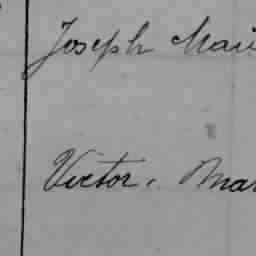 Joseph Mari
Victor, Mar